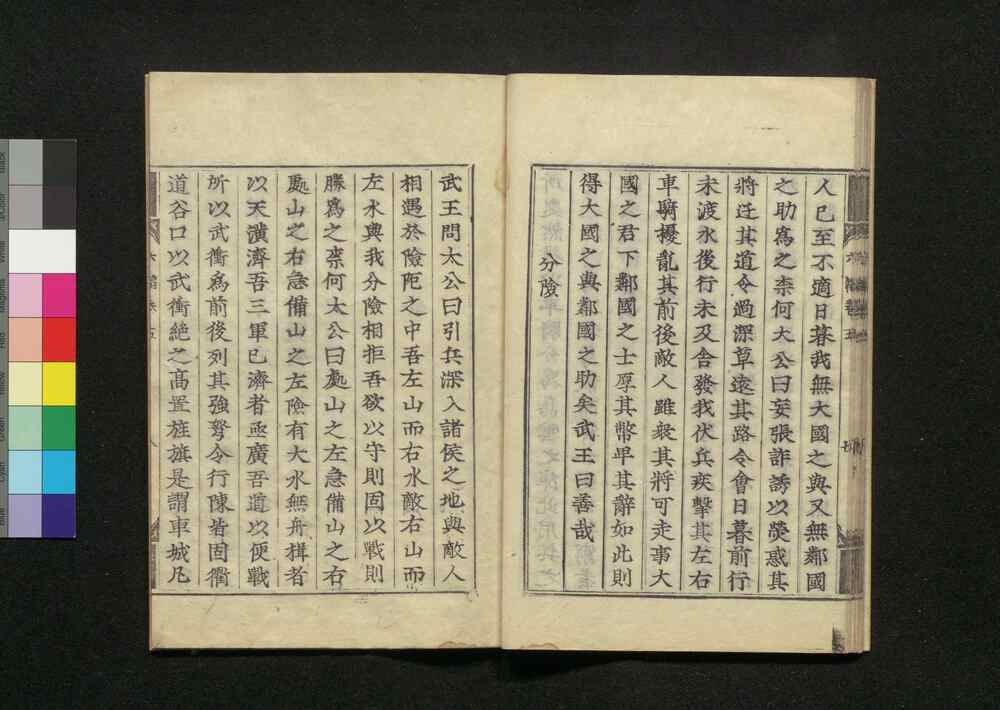 人已至不適日暮我無大國之與又無鄰國
之助為之柰何太公曰妄張詐誘以熒惑其
將迂其道令過深草遠其路令會日暮前行
未渡水後行未及舍發我伏兵疾擊其左右
車騎擾亂其前後敵人雖衆其將可走事大
國之君下鄰國之士厚其幣卑其辭如此則
得大國之與鄰國之助矣武王曰善哉
分險
武王問太公曰引兵深入諸侯之地與敵人
相遇於險阨之中吾左山而右水敵右山而
左水與我分險相拒吾欲以守則固以戰則
勝爲之柰何太公曰處山之左急備山之右
處山之右急備山之左險有大水無舟楫者
以天潢濟吾三軍已濟者亟廣吾道以便戰
所以武衝爲前後列其強弩令行陳皆固衢
道谷口以武衝絶之高置旌旗是謂車城凡